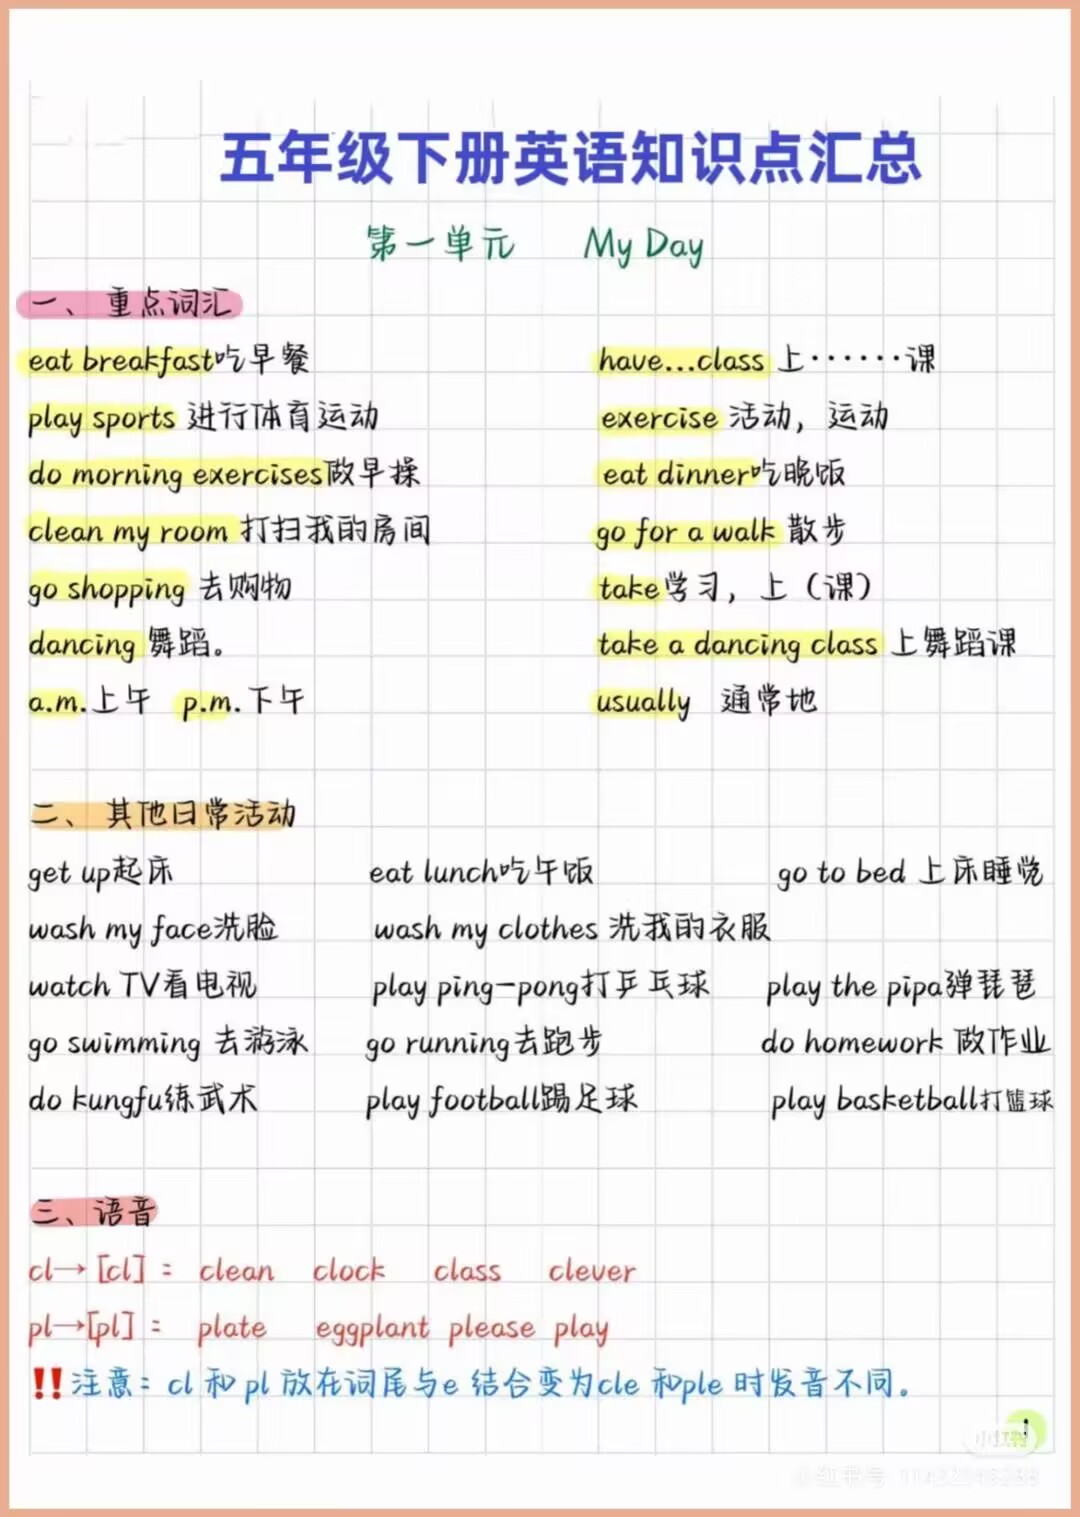 五年级下册英语知识点汇总
第一单元 My Day
一、 重点词汇
eat breakfast吃早餐 have...class 上······课
play sports 进行体育运动 exercise 活动，运动
do morning exercises做早操 eat dinner吃晚饭
clean my room 打扫我的房间 go for a walk 散步
go shopping 去购物 take学习，上（课）
dancing 舞蹈。 take a dancing class 上舞蹈课
a.m.上午 p.m.下午 usually 通常地
二、 其他日常活动
get up起床 eat lunch吃午饭 go to bed 上床睡觉
wash my face洗脸 wash my clothes 洗我的衣服
watch TV看电视 play ping-pong打乒乓球 play the pipa弹琵琶
go swimming 去游泳 go running去跑步 do homework 做作业
do kungfu练武术 play football踢足球 play basketball打篮球
三、语音
cl→[cl]： clean clock class clever
pl→[pl]： plate eggplant please play
‼注意：cl 和 pl 放在词尾与e 结合变为cle 和ple 时发音不同。
1
小红书
小红书号